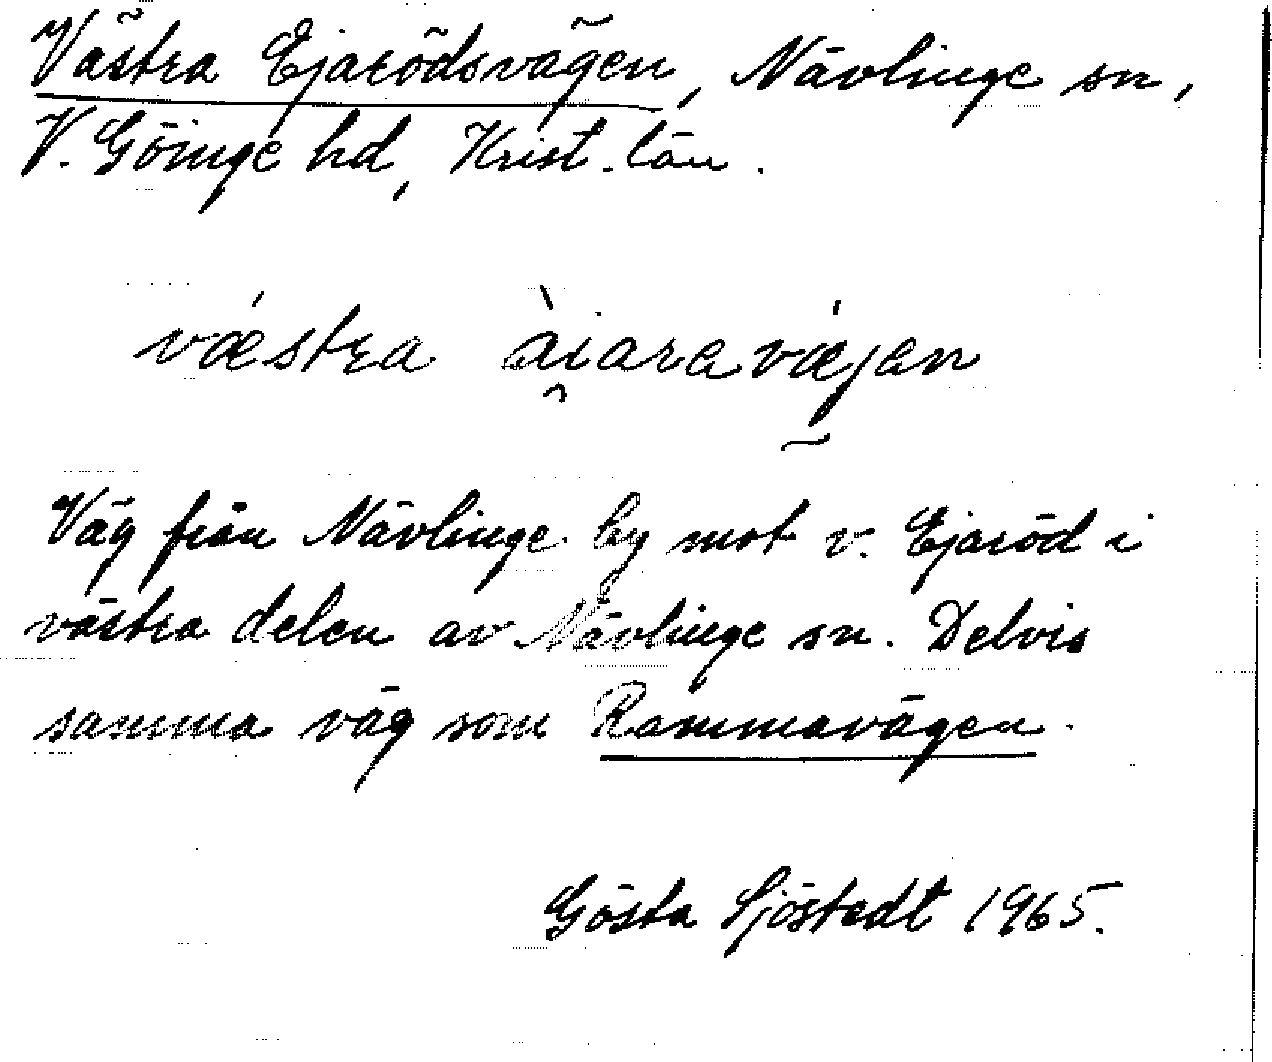 Västra Ejarödsvägen, Nävlinge sn,
V. Göinge hd, Krist. län.
vǽstra ài̯aravǽjen
Väg från Nävlinge by mot v. Ejaröd i
västra delen av Nävlinge sn. Delvis
samma väg som Rammavägen.
Gösta Sjöstedt 1965.